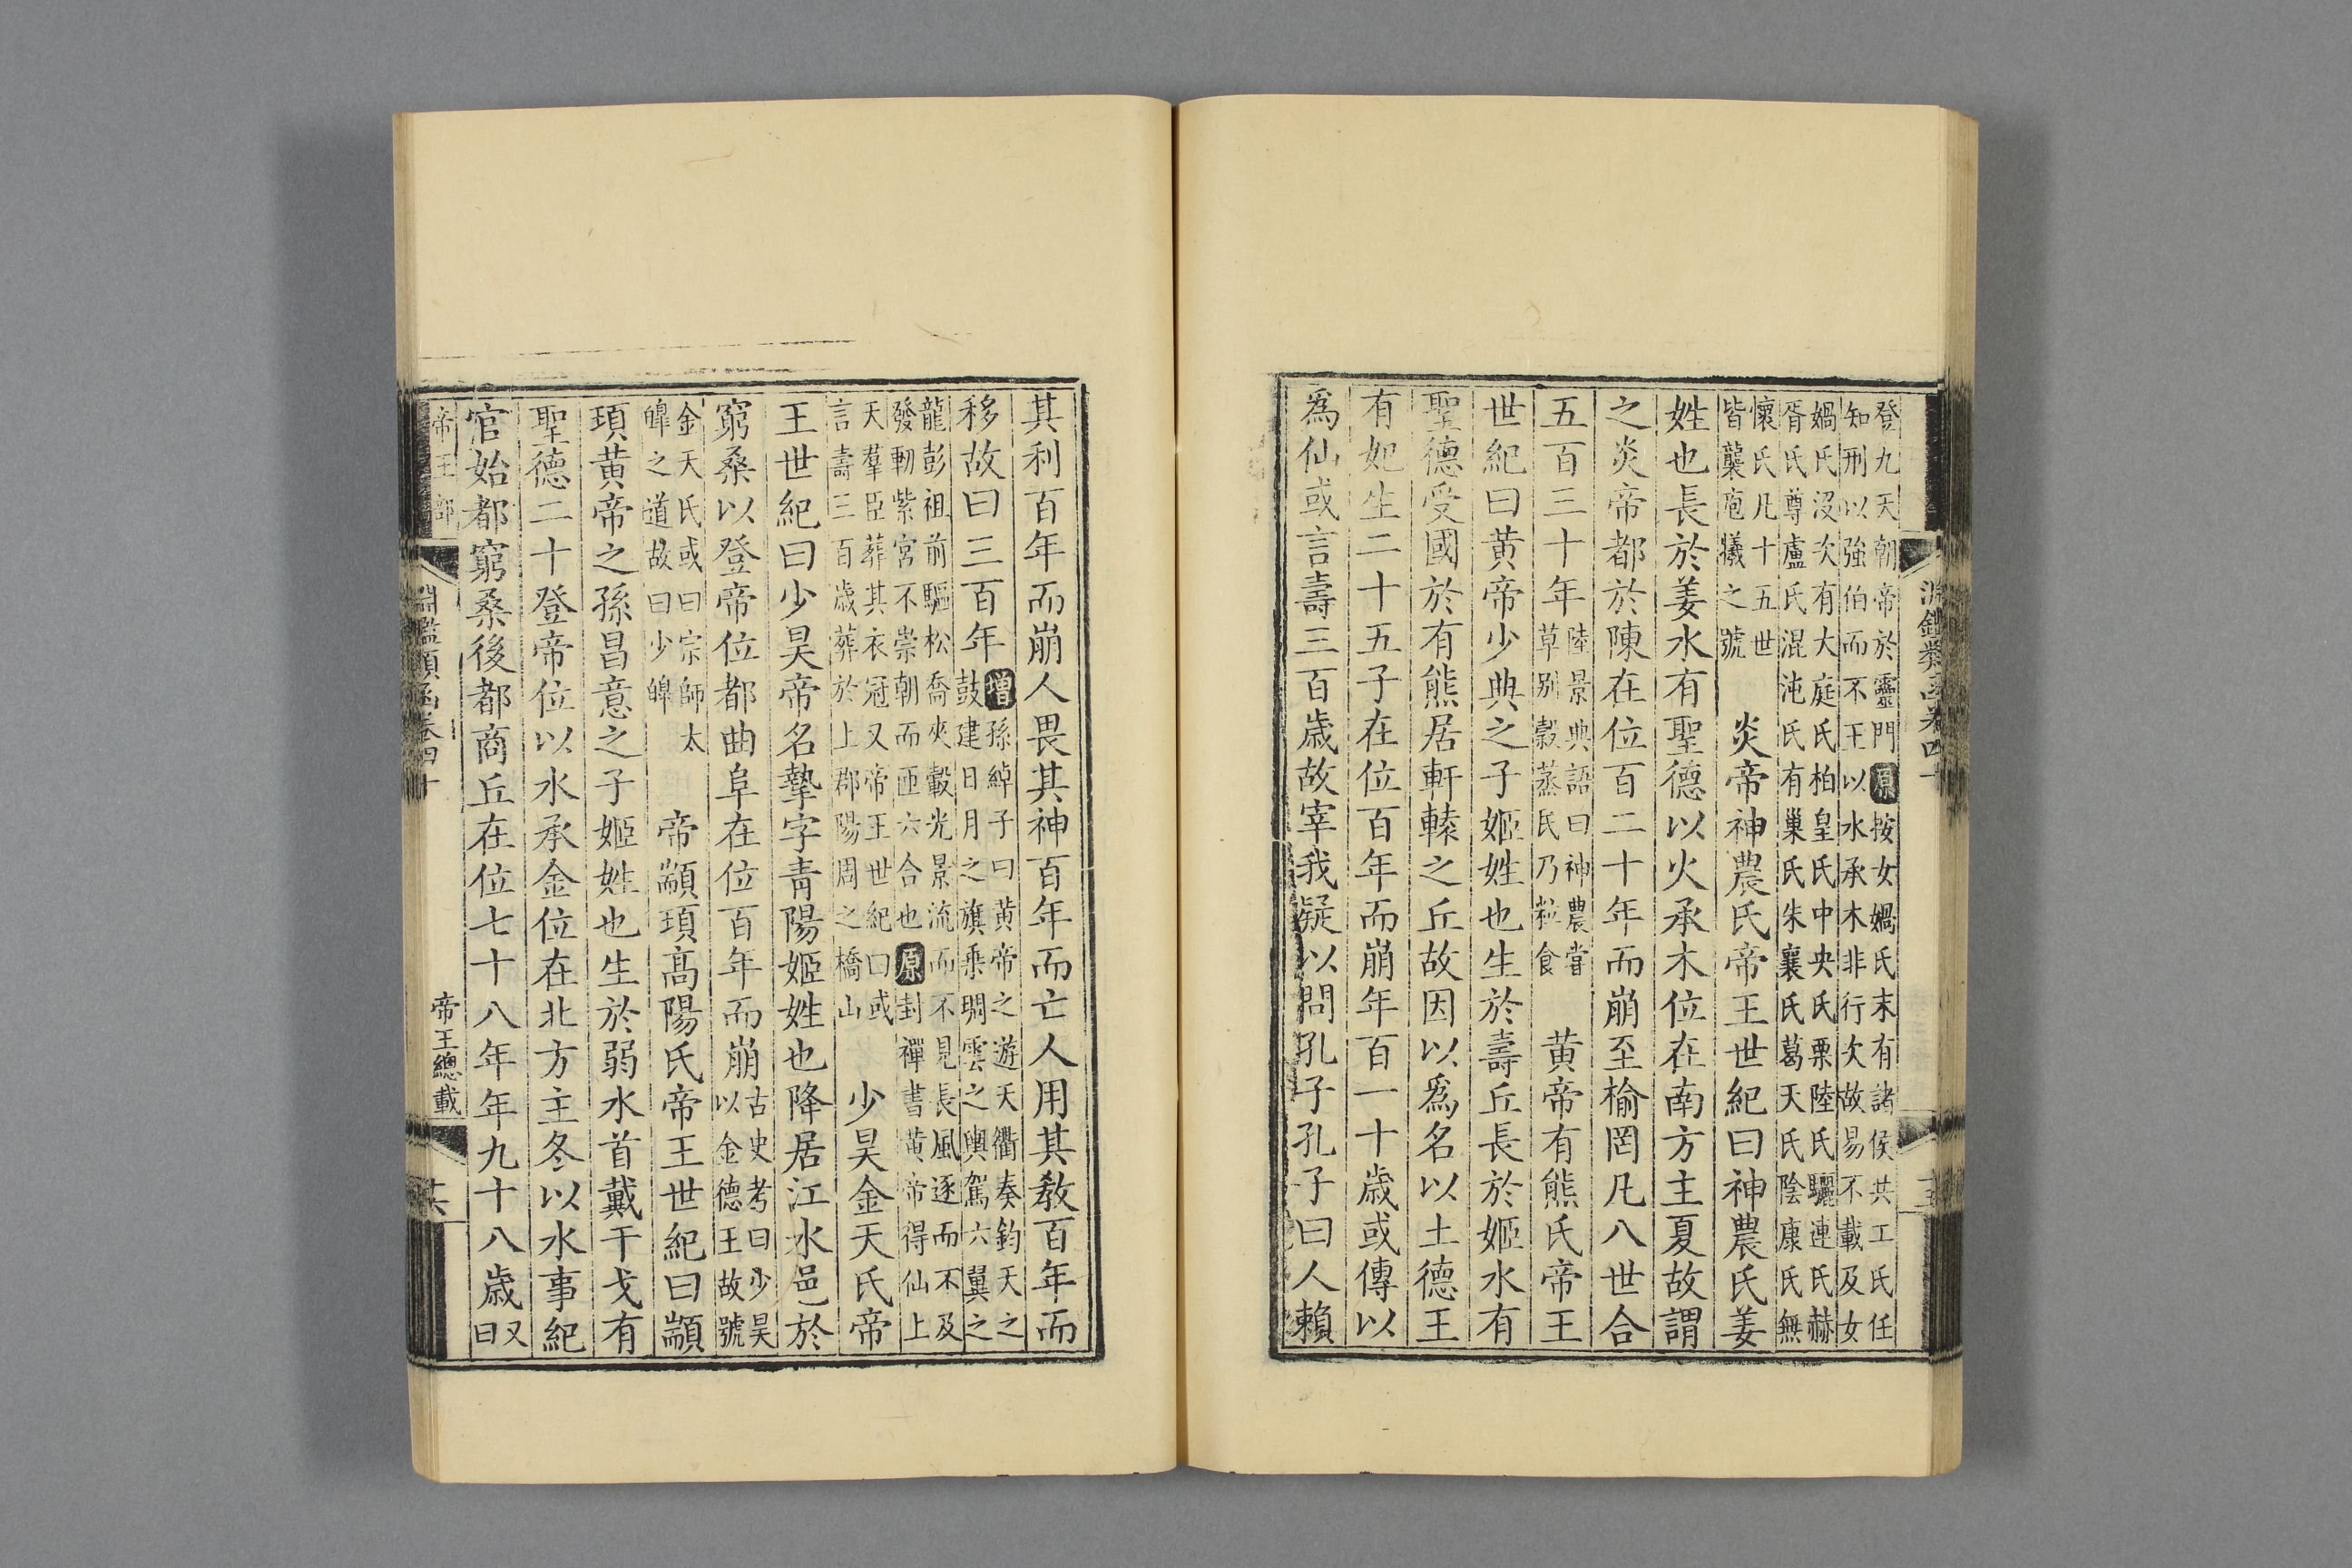 登九天朝帝於靈門原按女媧氏末有諸侯共工氏任
知刑以強伯而不王以水承木非行次故易不載及女
媧氏沒次有大庭氏柏皇氏中央氏栗陸氏驪連氏赫
胥氏尊盧氏混沌氏有巢氏朱襄氏葛天氏陰康氏無
懷氏凡十五世
皆襲庖犧之號
炎帝神農氏帝王世紀曰神農氏姜
姓也長於姜水有聖德以火承木位在南方主夏故謂
之炎帝都於陳在位百二十年而崩至榆罔凡八世合
五百三十年
陸景典語曰神農嘗
草别穀蒸民乃粒食
黄帝有熊氏帝王
世紀曰黄帝少典之子姬姓也生於壽丘長於姬水有
聖德受國於有熊居軒轅之丘故因以爲名以土德王
有妃生二十五子在位百年而崩年百一十歲或傳以
爲仙或言壽三百歲故宰我疑以問孔子孔子曰人賴
其利百年而崩人畏其神百年而亡人用其教百年而
移故曰三百年
增孫綽子曰黄帝之遊天衢奏鈞天之
鼓建日月之旗乘琱雲之輿駕六翼之
龍彭祖前驅松喬夾轂光景流而不見長風逐而不及
發軔紫宮不崇朝而匝六合也原封禪書黄帝得仙上
天羣臣葬其衣冠又帝王世紀曰或
言壽三百歲葬於上郡陽周之橋山
少昊金天氏帝
王世紀曰少昊帝名摯字青陽姬姓也降居江水邑於
窮桑以登帝位都曲阜在位百年而崩
古史考曰少昊
以金德王故號
金天氏或曰宗師太
皞之道故曰少皞
帝顓頊高陽氏帝王世紀曰顓
頊黄帝之孫昌意之子姬姓也生於弱水首戴干戈有
聖德二十登帝位以水承金位在北方主冬以水事紀
官始都窮桑後都商丘在位七十八年年九十八歲
又
曰
帝王部
淵鑑類函卷四十
帝王總載